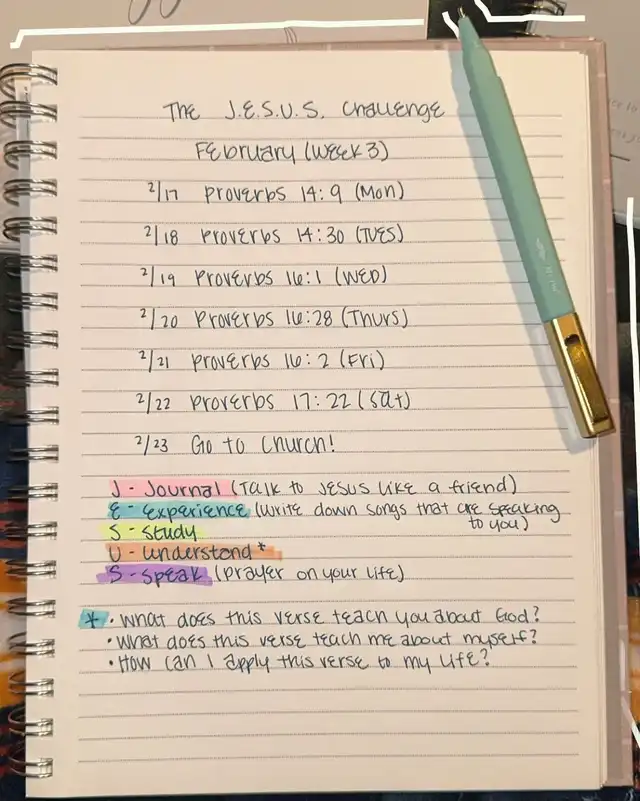 The J.E.S.U.S. Challenge
February (Week 3)
2/17 Proverbs 14:9 (Mon)
2/18 Proverbs 14:30 (Tues)
2/19 Proverbs 16:1 (Wed)
2/20 Proverbs 16:28 (Thurs)
2/21 Proverbs 16:2 (Fri)
2/22 Proverbs 17:22 (Sat)
2/23 Go to Church!
J - Journal (Talk to Jesus like a friend)
E - Experience (write down songs that are speaking
to you)
S - Study
U - Understand*
S - Speak (prayer on your life)
* • What does this verse teach you about God?
• What does this verse teach me about myself?
• How can I apply this verse to my life?